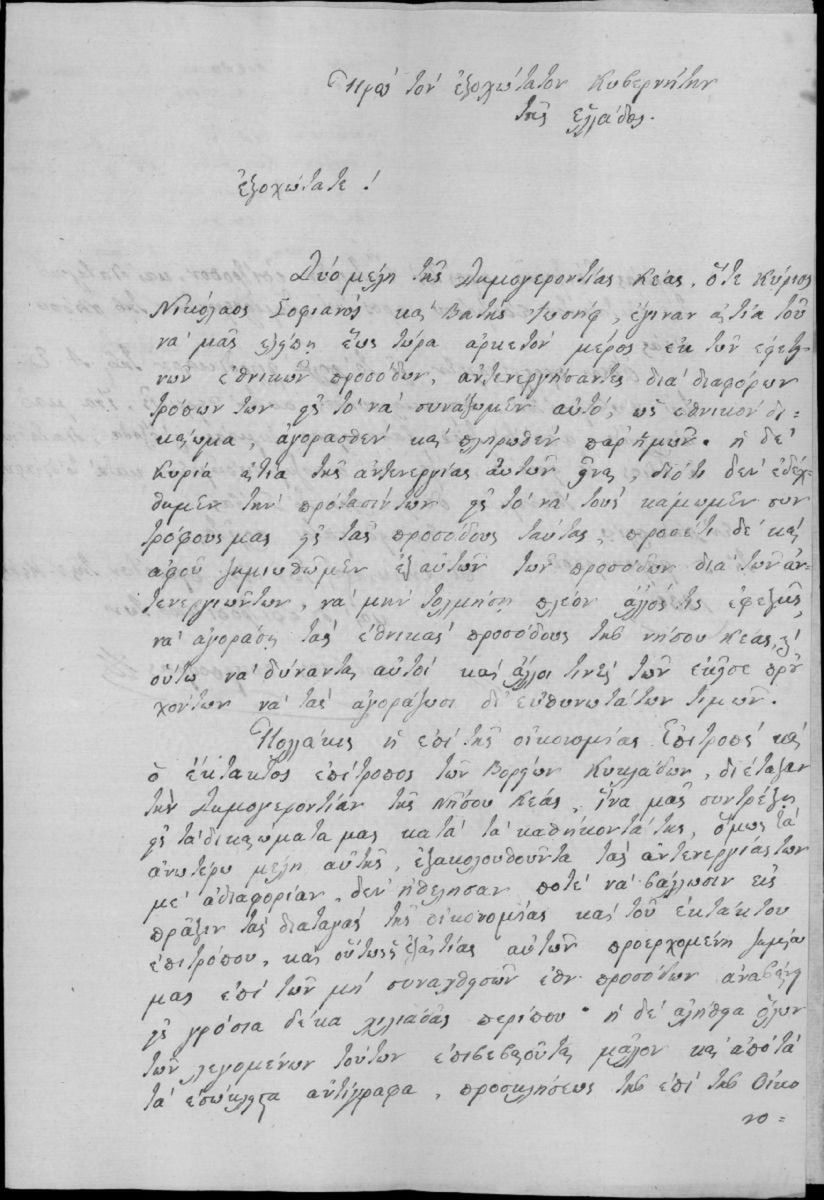 Πρὸς τὸν ἐξοχώτατον Κυβερνήτην
τῆς Ἑλλάδος.
ἐξοχώτατε!
Δύο μέλη τῆς Δημογεροντίας Κέας, ὅτε Κύριος
Νικόλαος Σοφιανός καὶ Βατῆς Ἰωσὴφ, ἔγιναν αἰτία τοῦ
νὰ μᾶς λείψῃ ἕως τώρα ἀρκετὸν μέρος ἐκ τῶν ἐφετει-
νῶν ἐθνικῶν προσόδων, ἀντενεργήσαντες διὰ διαφόρων
τρόπων των εἰς τὸ νὰ συνάξωμεν αὐτό, ὡς ἐθνικὸν δι-
καίωμα, ἀγορασθὲν καὶ πληρωθὲν παρ' ἡμῶν. ἡ δὲ
κυρία αἰτία τῆς ἀντενεργίας αὐτῶν εἶναι, διότι δὲν ἐδέχ-
θημεν τὴν πρότασίν των εἰς τὸ νὰ τοὺς κάμωμεν συν
τρόφους μας εἰς τὰς προσόδους ταύτας, προσέτι δὲ καὶ
ἀφοῦ ζημιωθῶμεν ἐξ αὐτῶν τῶν προσόδων διὰ τῶν ἀν-
τενεργιῶν των, νὰ μὴν τολμήσῃ πλέον ἄλλός τις ἐφεξῆς
νὰ ἀγοράσῃ τὰς ἐθνικὰς προσόδους τῆς νήσου Κέας,
οὕτω νὰ δύνανται αὐτοὶ καὶ ἄλλοι τινὲς τῶν ἐκεῖσε προὐ
χόντων νὰ τὰς ἀγοράζωσι δι' εὐθυνωτάτων τιμῶν.
Πολλάκις ἡ ἐπὶ τῆς οἰκονομίας Ἐπιτροπὴ καὶ
ὁ ἔκτακτος ἐπίτροπος τῶν Βορείων Κυκλάδων, διέταξαν
τὴν Δημογεροντίαν τῆς Νήσου Κέας, ἵνα μᾶς συντρέξῃ
εἰς τὰ δικαιώματά μας κατὰ τὰ καθήκοντά της, ὅμως τὰ
ἀνωτέρω μέλη αὐτῆς, ἐξακολουθοῦντα τὰς ἀντενεργίας των
μὲ ἀδιαφορίαν, δὲν ἠθέλησαν ποτὲ νὰ βάλλωσιν εἰς
πρᾶξιν τὰς διαταγὰς τῆς οἰκονομίας καὶ τοῦ ἐκτάκτου
ἐπιτρόπου, καὶ οὕτως ἡ ἐξ αἰτίας αὐτῶν προερχομένη ζημία
μας ἐπὶ τῶν μὴ συναχθησῶν ἐθν προσόδων ἀναβαίνει
εἰς γρόσια δέκα χιλιάδας περίπου. ἡ δὲ ἀλήθεια ὅλων
τῶν λεγομένων τούτων ἐπιβεβαιοῦται μᾶλλον καὶ ἀπὸ τὰ
τὰ ἐσώκλειστα ἀντίγραφα, προσκλήσεως τῆς ἐπὶ τῆς Οἰκο
νο=